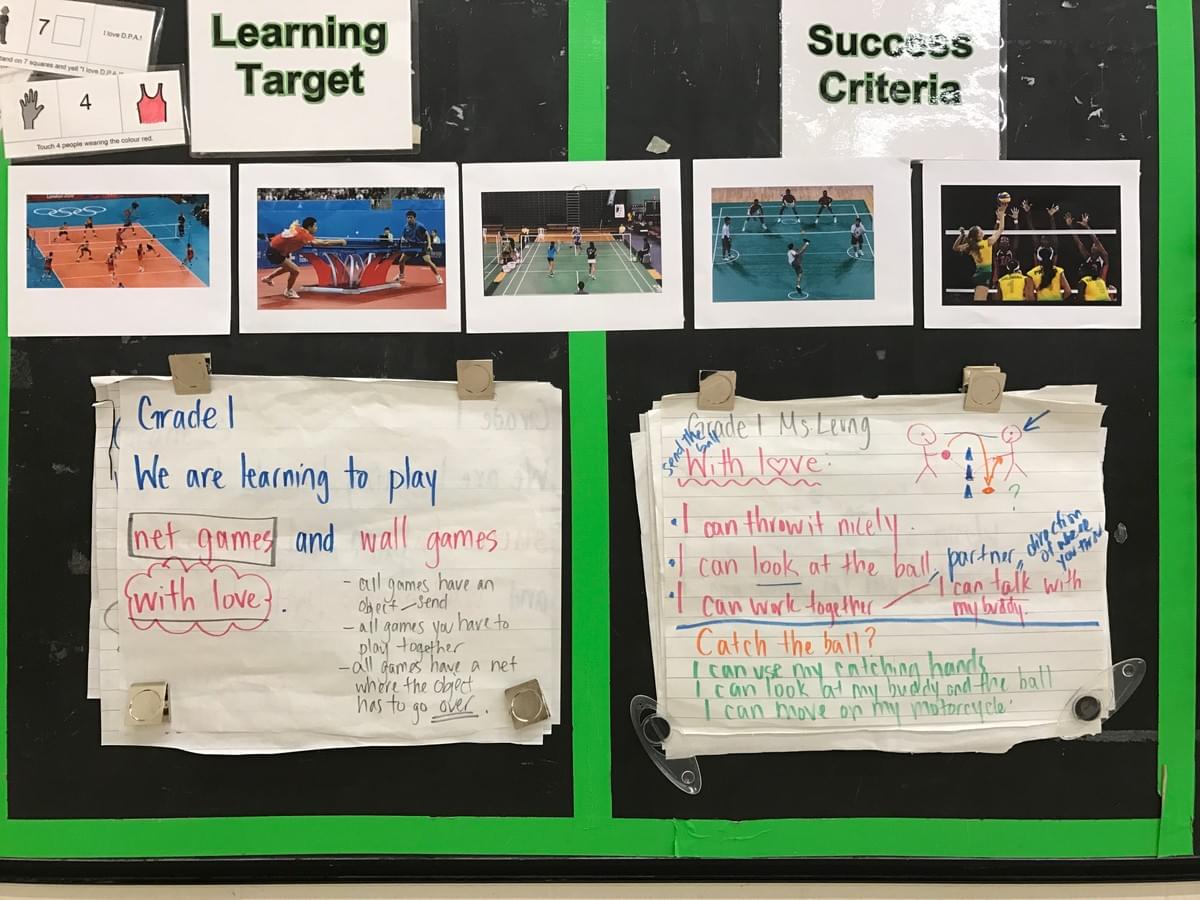 7
I love D.P.A.!
and on 7 squares and yell "I love D.P.A.
4
Touch 4 people wearing the colour red.
Learning
Target
Success
Criteria
Grade 1
We are learning to play
net games and wall games
with love.
- all games have an
object - send
- all games you have to
play together
- all games have a net
where the object
has to go over.
Grade 1 Ms. Leung
send the
ball
With l♡ve:
?
• I can throw it nicely.
• I can look at the ball, partner, direction
of where
you throw
• I can work together
I can talk with
my buddy.
Catch the ball?
I can use my catching hands
I can look at my buddy and the ball
I can move on my motorcycle.